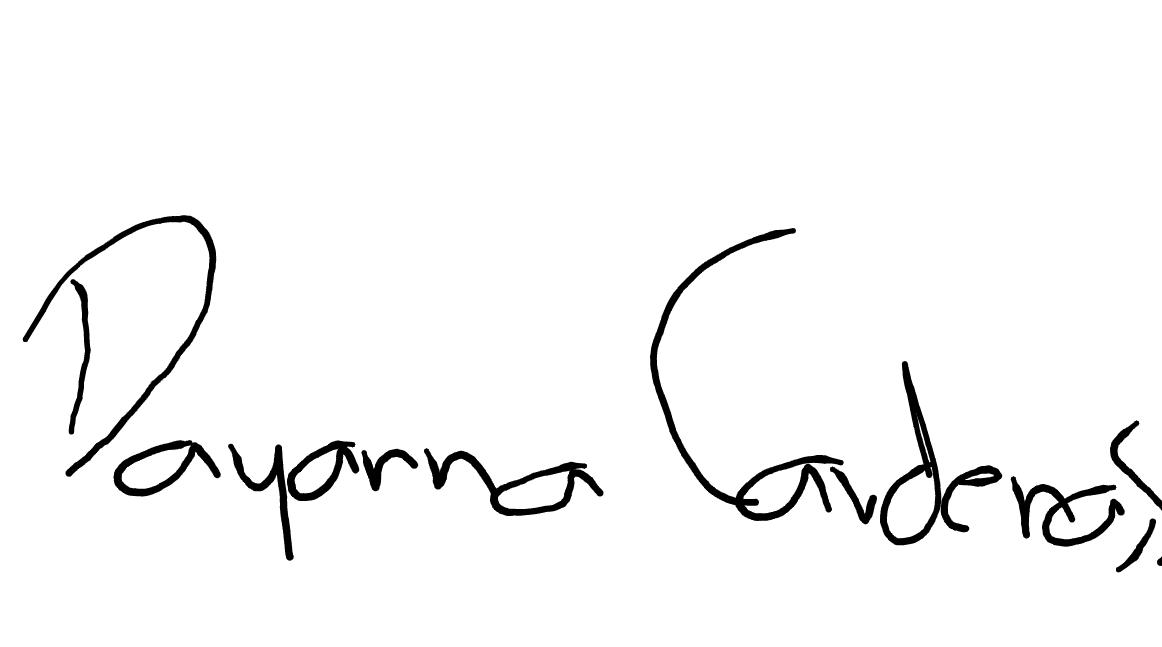 Dayanna Cardenas